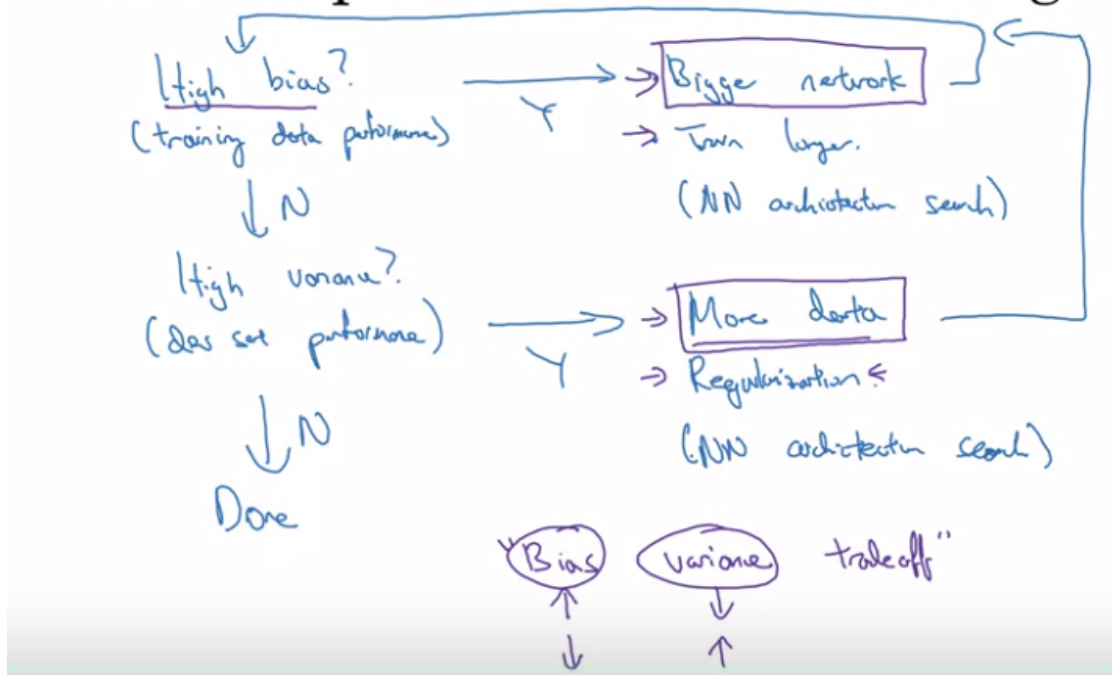 High bias?
(training data performance)
Y
Bigge network
Train longer.
(NN architecture search)
N
High variance?
(dev set performance)
Y
More data
Regularization.
(NN architecture search)
N
Done
"Bias variance tradeoff"